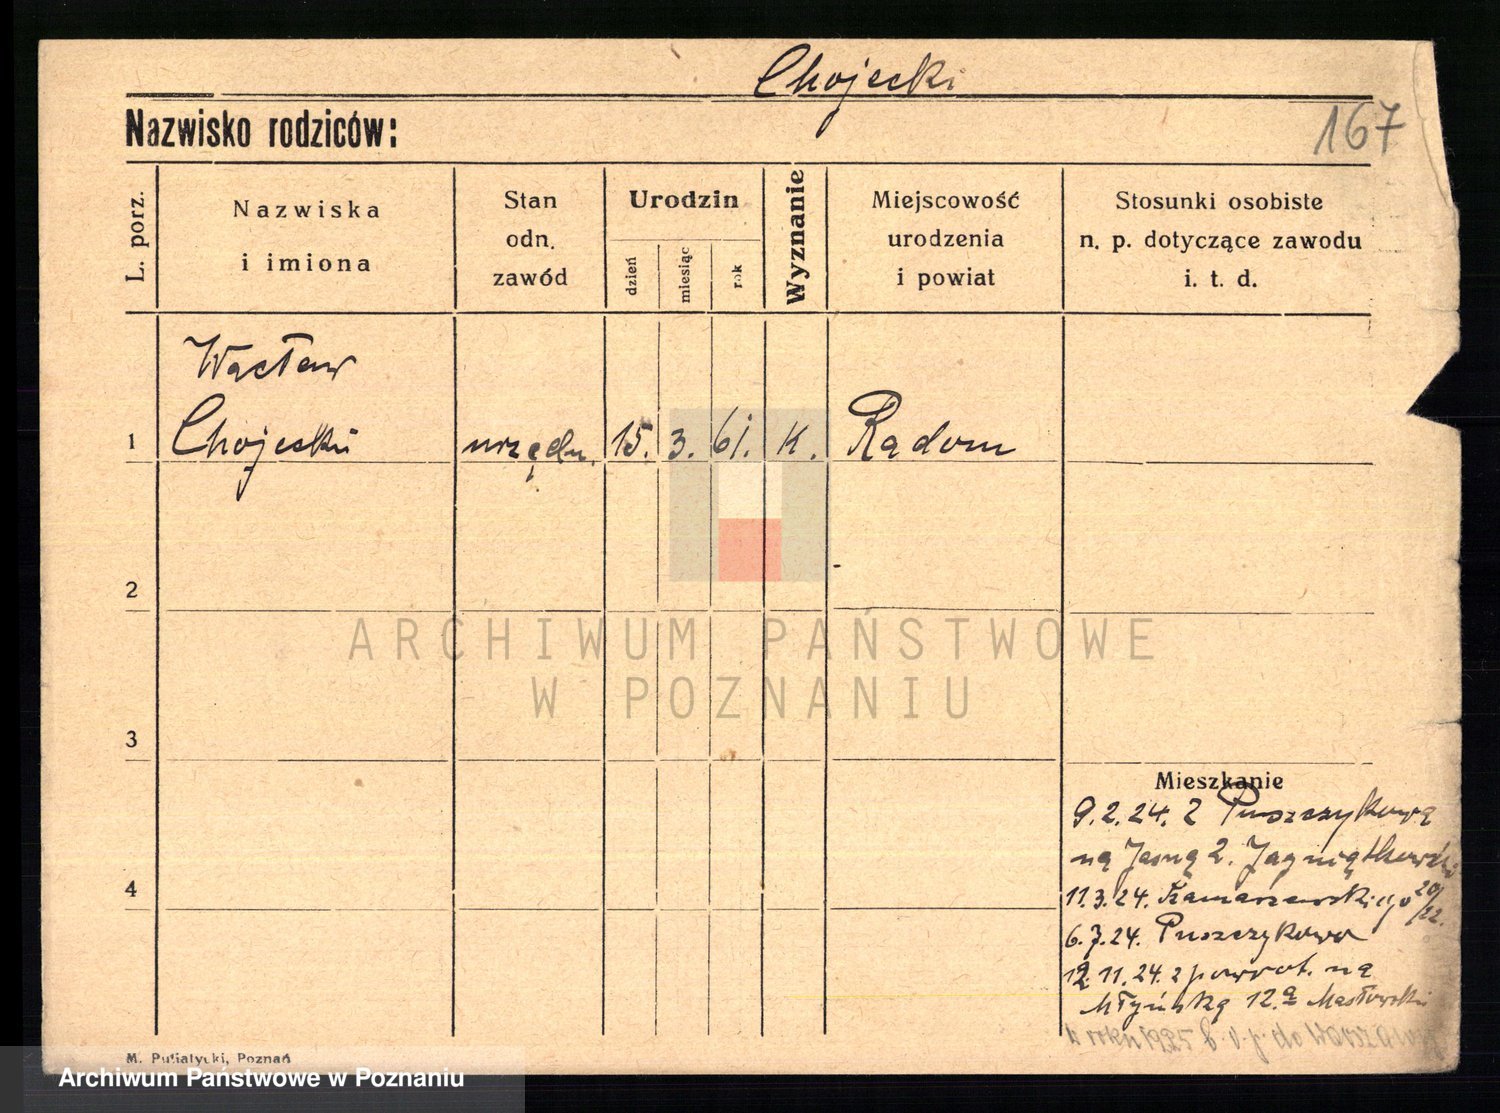 Chojecki
Nazwisko rodziców:
167
L. porz.
Nazwiska
i imiona
Stan
odn.
zawód
Urodzin
dzień
miesiąc
rok
Wyznanie
Miejscowość
urodzenia
i powiat
Stosunki osobiste
n. p. dotyczące zawodu
i. t. d.
Wacław
1 Chojecki urzędn. 15. 3. 61. K. Radom
2
ARCHIWUM PAŃSTWOWE
W POZNANIU
3
Mieszkanie
9.2.24. z Puszczykowa
na Jasną 2.
4
11.3.24. 20/22.
6.7.24. Puszczykowo
12.11.24. z powrot. na
Młyńską 12.a Masłowski
w roku 1925 do Warszawy
M. Putiatycki, Poznań
Archiwum Państwowe w Poznaniu